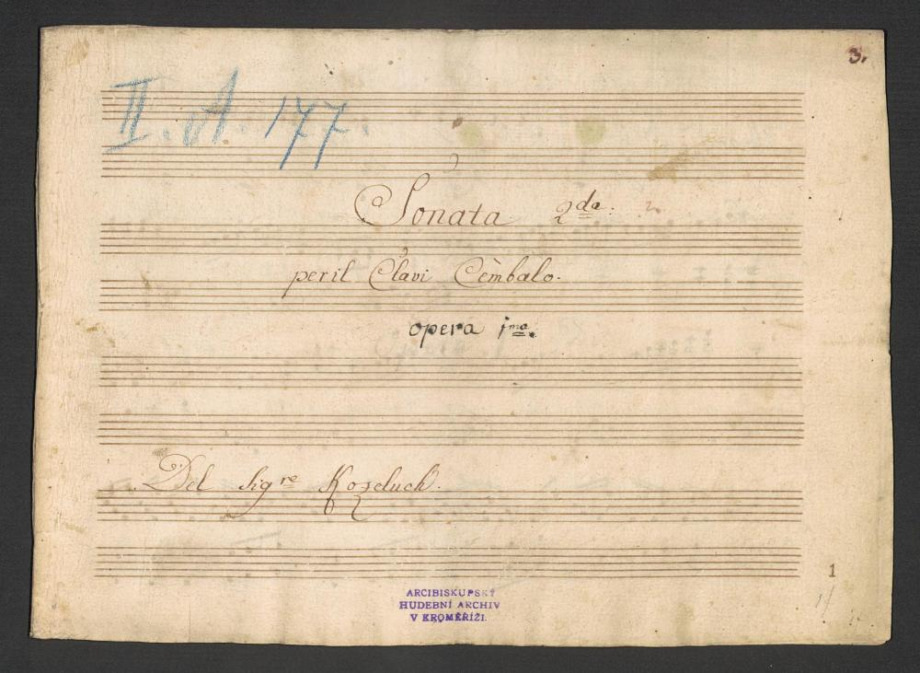 3.
II. A. 177.
Sonata 2da:
peril Clavi Cèmbalo.
opera 1ma.
Del Sigre Kozeluch.
1
ARCIBISKUPSKÝ
HUDEBNÍ ARCHIV
V KROMĚŘÍŽI.